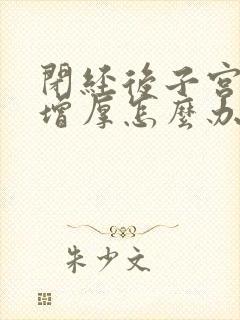 閉經後子宮
增厚怎麼办
朱少文